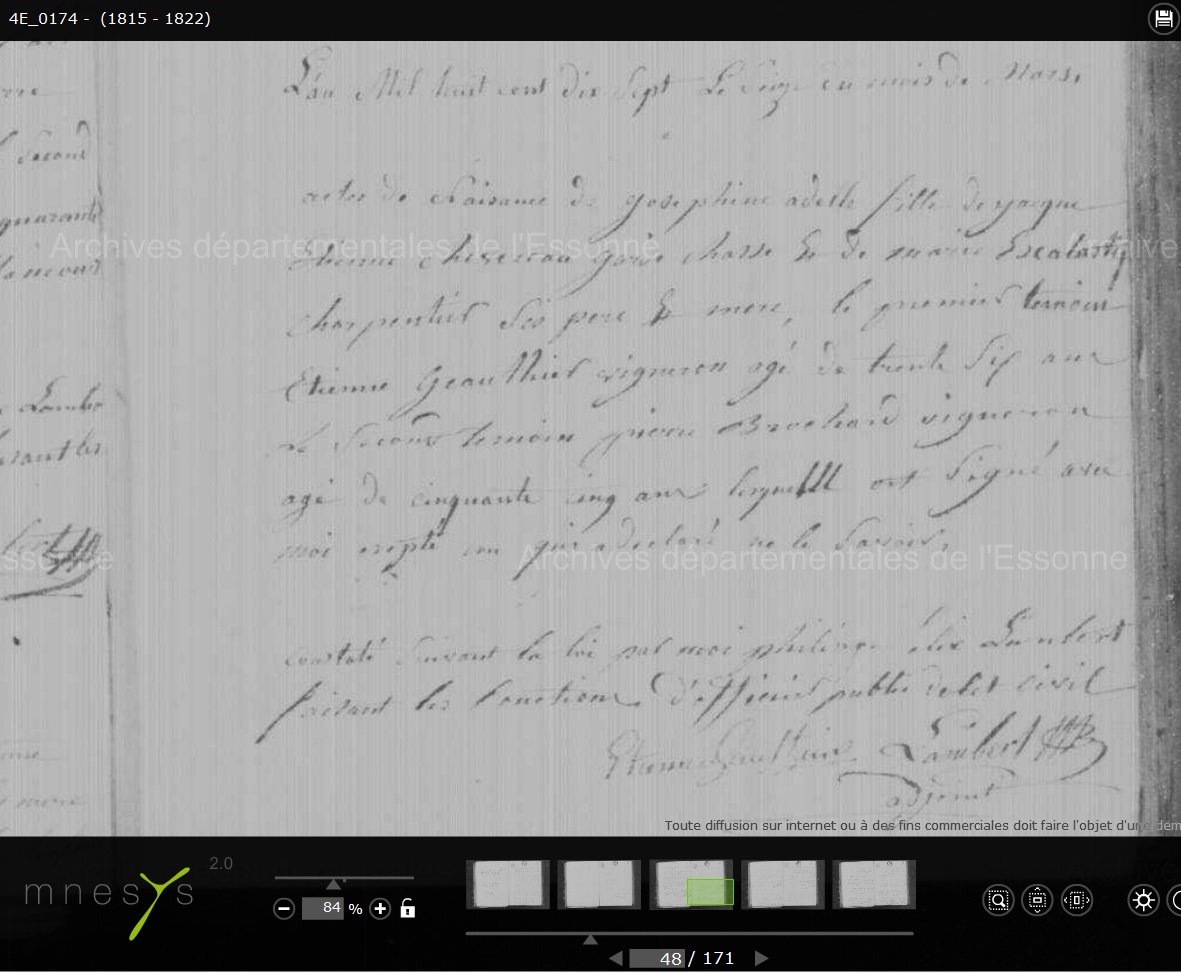 4E_0174 - (1815 - 1822)
L'an Mil huit cent dix Sept Le Seize du mois de Mars,
second
acte de Naisance de josephine adelle fille de jacque
quarante
Archives départementales de l'Essonne
Etienne chiseneau garde chasse Et de marie Escalasty
charpentier Ses pere Et mere, le premier temoin
Etienne Geaulthier vigneron agé de trente Six ans
Lambe
Le Second temoin pierre Brochard vigneron
agé de cinquante cinq ans lesquelll ont Signé avec
moi exepté un qui a declaré ne le Savoir,
Archives départementales de l'Essonne
constaté Suivant la loi par moi philippe felix Lambert
faisant les fonctions d'officier public de let civil
Etienne Gaulthier Lambert
adjoint
mere
Toute diffusion sur internet ou à des fins commerciales doit faire l'objet d'une dem
mnesys 2.0
84 %
48 / 171